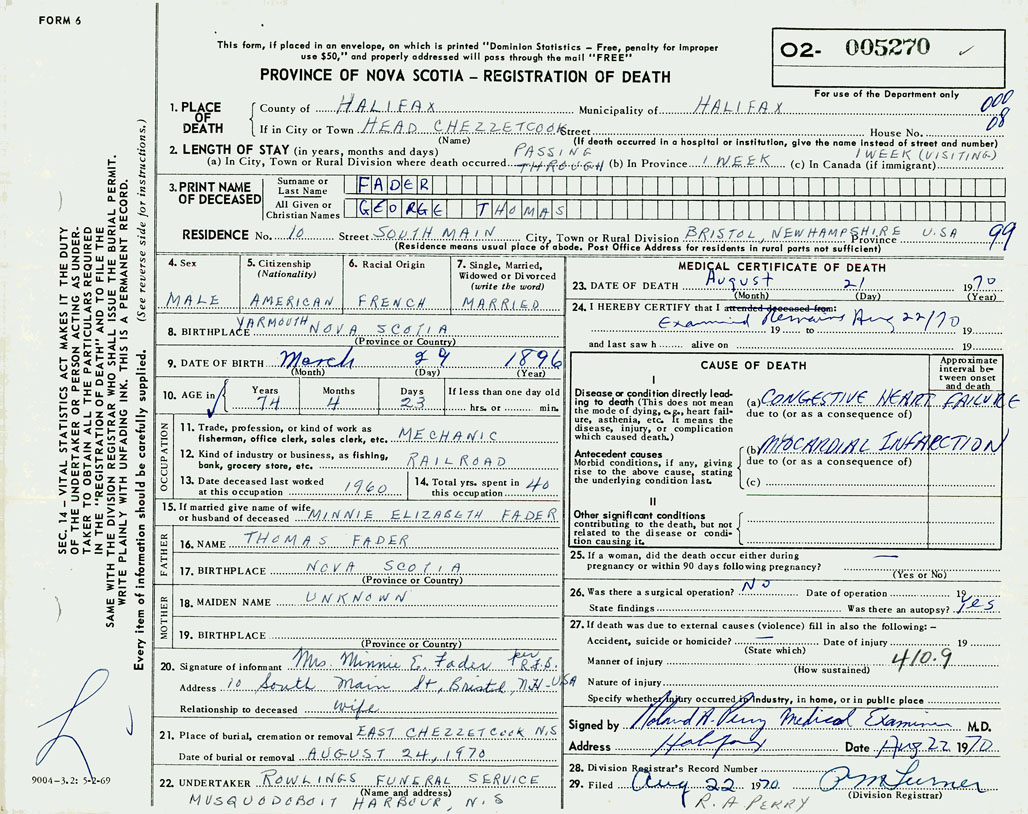 FORM 6
02- 005270 ✓
This form, if placed in an envelope, on which is printed "Dominion Statistics – Free, penalty for improper
use $50," and properly addressed will pass through the mail "FREE"
PROVINCE OF NOVA SCOTIA – REGISTRATION OF DEATH
For use of the Department only
000
08
1. PLACE OF DEATH
County of HALIFAX Municipality of HALIFAX
If in City or Town HEAD CHEZZETCOOK Street House No.
(Name) (If death occurred in a hospital or institution, give the name instead of street and number)
2. LENGTH OF STAY (in years, months and days) PASSING 1 WEEK (VISITING)
(a) In City, Town or Rural Division where death occurred THROUGH (b) In Province 1 WEEK (c) In Canada (if immigrant)
3. PRINT NAME OF DECEASED
Surname or Last Name FADER
All Given or Christian Names GEORGE THOMAS
RESIDENCE No. 10 Street SOUTH MAIN City, Town or Rural Division BRISTOL, NEWHAMPSHIRE Province U.S.A 99
(Residence means usual place of abode. Post Office Address for residents in rural parts not sufficient)
4. Sex
MALE
5. Citizenship
(Nationality)
AMERICAN
6. Racial Origin
FRENCH
7. Single, Married,
Widowed or Divorced
(write the word)
MARRIED
8. BIRTHPLACE YARMOUTH NOVA SCOTIA
(Province or Country)
9. DATE OF BIRTH March 29 1896
(Month) (Day) (Year)
10. AGE in
Years Months Days If less than one day old
74 4 23 hrs. or min.
OCCUPATION
11. Trade, profession, or kind of work as
fisherman, office clerk, sales clerk, etc. MECHANIC
12. Kind of industry or business, as fishing,
bank, grocery store, etc. RAILROAD
13. Date deceased last worked
at this occupation 1960
14. Total yrs. spent in
this occupation 40
15. If married give name of wife
or husband of deceased MINNIE ELIZABETH FADER
FATHER
16. NAME THOMAS FADER
17. BIRTHPLACE NOVA SCOTIA
(Province or Country)
MOTHER
18. MAIDEN NAME UNKNOWN
19. BIRTHPLACE
(Province or Country)
20. Signature of informant Mrs. Minnie E. Fader per
Address 10 South Main St, Bristol, N.H-USA
Relationship to deceased wife
21. Place of burial, cremation or removal EAST CHEZZETCOOK N.S
Date of burial or removal AUGUST 24, 1970
22. UNDERTAKER ROWLINGS FUNERAL SERVICE
(Name and address)
MUSQUODOBOIT HARBOUR, N.S
MEDICAL CERTIFICATE OF DEATH
23. DATE OF DEATH August 21 1970
(Month) (Day) (Year)
24. I HEREBY CERTIFY that I attended deceased from:
Examined Remains Aug 22/70
19 to 19
and last saw h alive on 19
CAUSE OF DEATH
Approximate
interval be-
tween onset
and death
I
Disease or condition directly lead-
ing to death (This does not mean
the mode of dying, e.g., heart fail-
ure, asthenia, etc. It means the
disease, injury, or complication
which caused death.)
(a) CONGESTIVE HEART FAILURE
due to (or as a consequence of)
Antecedent causes
Morbid conditions, if any, giving
rise to the above cause, stating
the underlying condition last.
(b) MYOCARDIAL INFARCTION
due to (or as a consequence of)
(c)
II
Other significant conditions
contributing to the death, but not
related to the disease or condi-
tion causing it.
25. If a woman, did the death occur either during
pregnancy or within 90 days following pregnancy? —
(Yes or No)
26. Was there a surgical operation? NO Date of operation 19
State findings Was there an autopsy? Yes
27. If death was due to external causes (violence) fill in also the following: –
Accident, suicide or homicide? — Date of injury 19
(State which)
Manner of injury 410.9
(How sustained)
Nature of injury
Specify whether injury occurred in industry, in home, or in public place
Signed by Roland A. Perry Medical Examiner M.D.
Address Halifax Date Aug 22 1970
28. Division Registrar's Record Number
29. Filed Aug 22 1970
(Division Registrar)
R. A PERRY
SEC. 14 – VITAL STATISTICS ACT MAKES IT THE DUTY
OF THE UNDERTAKER OR PERSON ACTING AS UNDER-
TAKER TO OBTAIN ALL THE PARTICULARS REQUIRED
IN THE "REGISTRATION OF DEATH" AND TO FILE THE
SAME WITH THE DIVISION REGISTRAR WHO SHALL ISSUE THE BURIAL PERMIT.
WRITE PLAINLY WITH UNFADING INK. THIS IS A PERMANENT RECORD.
Every item of information should be carefully supplied. (See reverse side for instructions.)
9004-3.2: 5-2-69